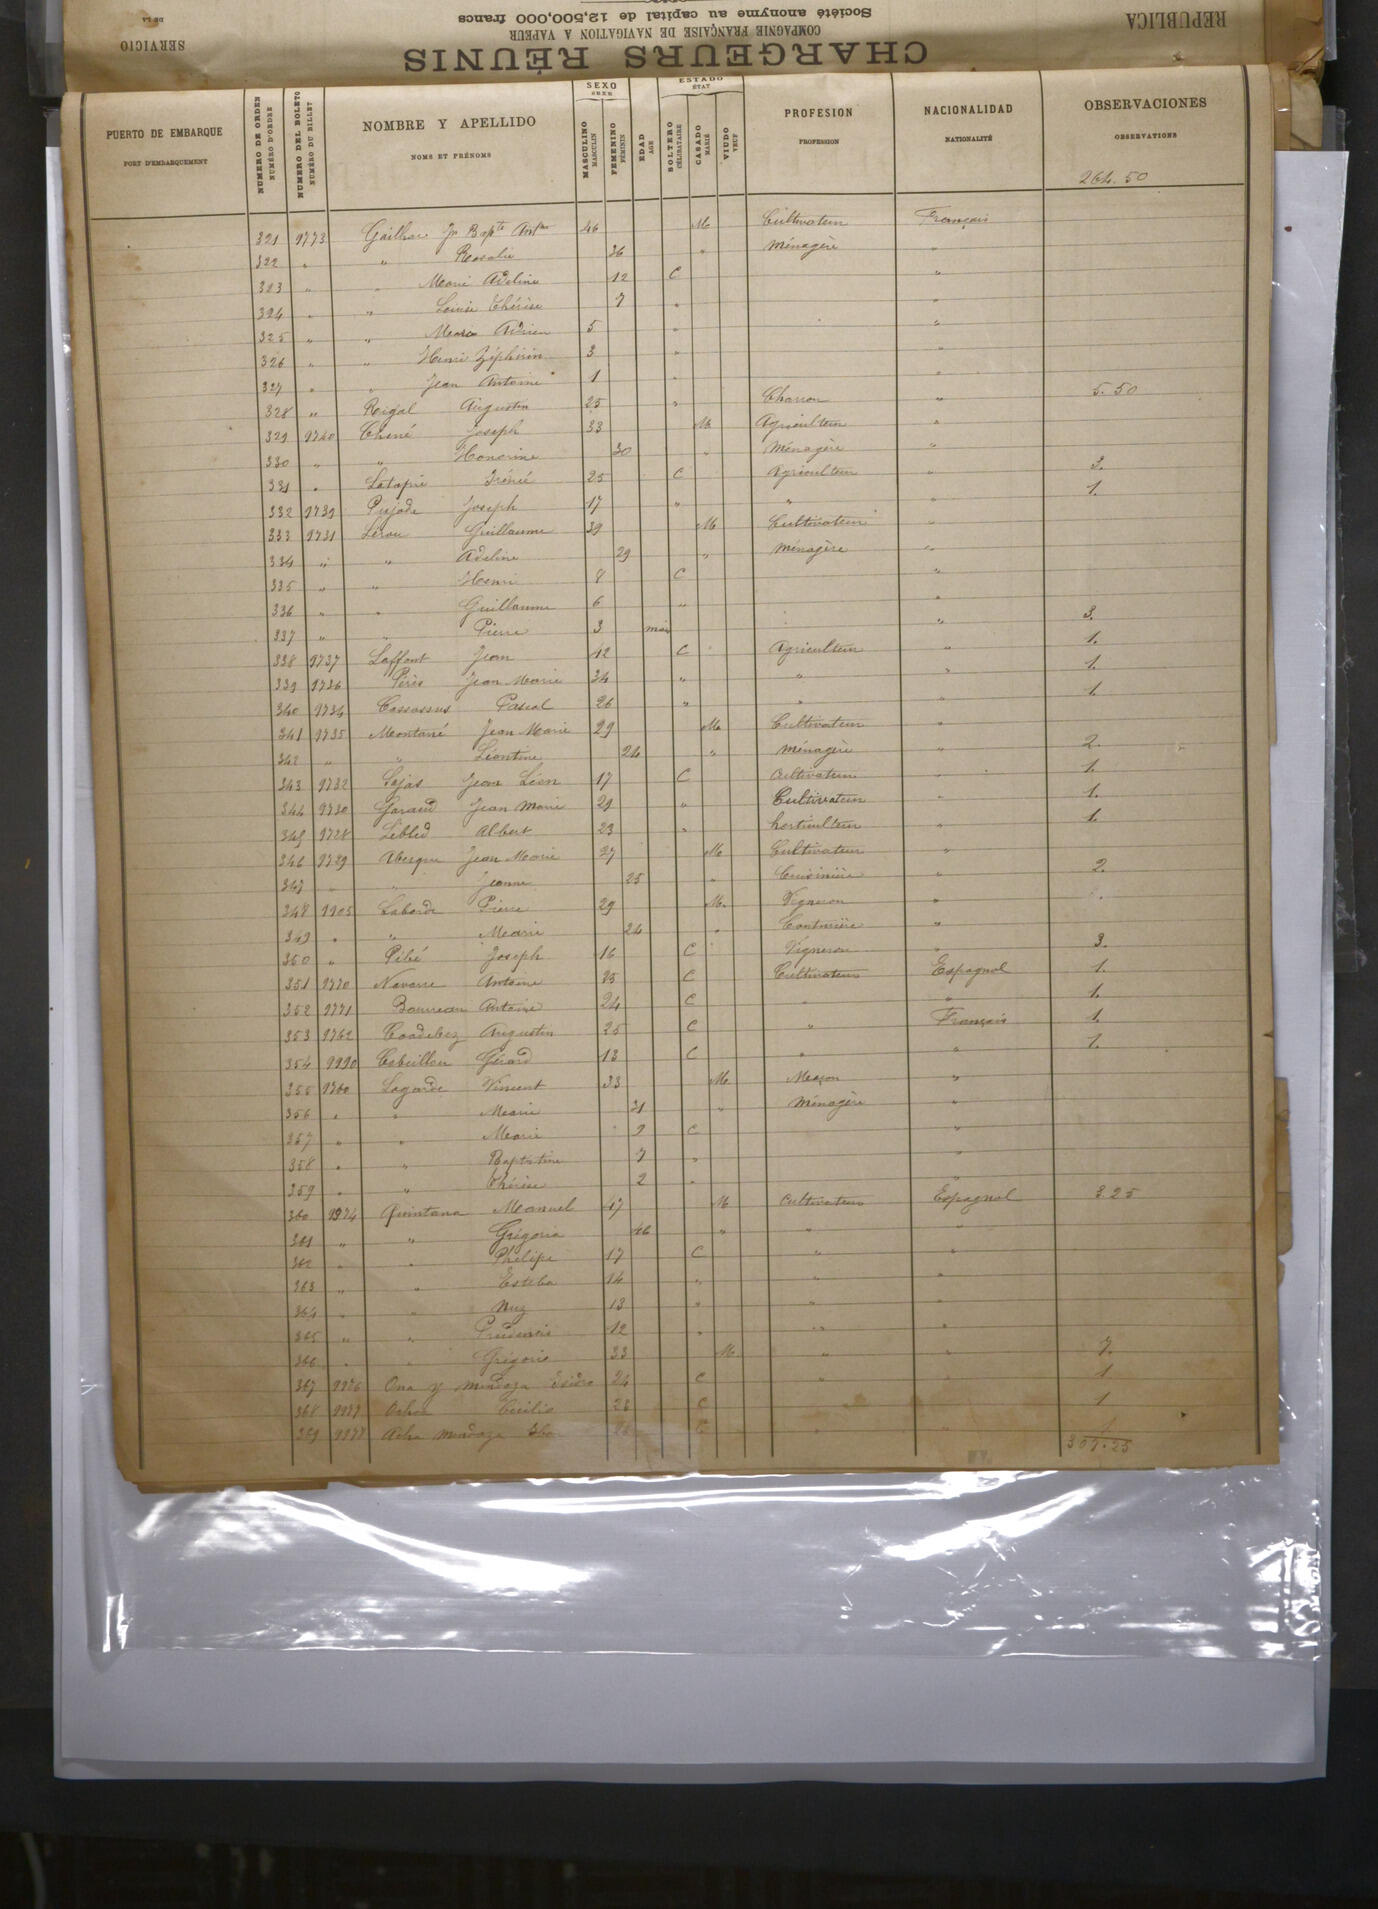 REPUBLICA
SERVICIO
DE LA
Société anonyme au capital de 12,500,000 francs
COMPAGNIE FRANÇAISE DE NAVIGATION A VAPEUR
CHARGEURS RÉUNIS
PUERTO DE EMBARQUE
PORT D'EMBARQUEMENT
NUMERO DE ORDEN
NUMÉRO D'ORDRE
NUMERO DEL BOLETO
NUMÉRO DU BILLET
NOMBRE Y APELLIDO
NOMS ET PRÉNOMS
SEXO
SEXE
MASCULINO
MASCULIN
FEMENINO
FÉMININ
EDAD
AGE
ESTADO
ÉTAT
SOLTERO
CÉLIBATAIRE
CASADO
MARIÉ
VIUDO
VEUF
PROFESION
PROFESSION
NACIONALIDAD
NATIONALITÉ
OBSERVACIONES
OBSERVATIONS
264.50
321 9773 Jn Bapte 46 M Cultivateur Français
322 " " Rosalie 36 " Ménagère "
323 " " Marie Adeline 12 C "
324 " " Louise Thérèse 7 " "
325 " " Adrien 5 " "
326 " " Henri Zéphirin 3 " "
327 " " Jean Antoine 1 " "
328 " Rigal Augustin 25 " Charron " 5.50
329 9740 Chené Joseph 33 M Agriculteur "
330 " " Honorine 30 " Ménagère "
331 " Latapie Irénée 25 C Agriculteur " 3.
332 9739 Pujade Joseph 17 " " " 1.
333 9731 Lérou Guillaume 39 M Cultivateur "
334 " " Adeline 29 " Ménagère "
335 " " Henri 8 C "
336 " " Guillaume 6 " "
337 " " Pierre 3 mois " 3.
338 9737 Laffont Jean 42 C Agriculteur " 1.
339 9736 Péris Jean Marie 34 " " " 1.
340 9734 Cassassus Pascal 26 " " " 1.
341 9735 Montané Jean Marie 29 M Cultivateur "
342 " " Léontine 24 " Ménagère " 2.
343 9732 Lajas Jean Léon 17 C Cultivateur " 1.
344 9730 Garaud Jean Marie 29 " Cultivateur " 1.
345 9728 Lebled Albert 23 " horticulteur " 1.
346 9729 Abesque Jean Marie 27 M Cultivateur "
347 " " Jeanne 25 " Cuisinière " 2.
348 9905 Laborde Pierre 29 M. Vigneron "
349 " " Marie 24 " Couturière "
350 " Pébé Joseph 16 C Vigneron " 3.
351 9770 Navarre Antoine 35 C Cultivateur Espagnol 1.
352 9771 Antoine 24 C " " 1.
353 9762 Augustin 25 C " Français 1.
354 9990 Gérard 13 C " " 1.
355 9760 Lagarde Vincent 33 M Maçon "
356 " " Marie 31 " Ménagère "
357 " " Marie 9 C "
358 " " Baptistine 7 " "
359 " " Thérèse 2 " " 3.25
360 9974 Quintana Manuel 47 M Cultivateur Espagnol
361 " " Grégoria 46 " " "
362 " " Philipe 17 C " "
363 " " Esteba 14 " " "
364 " " 13 " " "
365 " " 12 " " "
366 " " Grégorio 33 M " " 7.
367 9976 Ona y Mendoza Isidro 24 C " " 1
368 Cecilio 28 C 1
369 Mendoza C 1
307.25